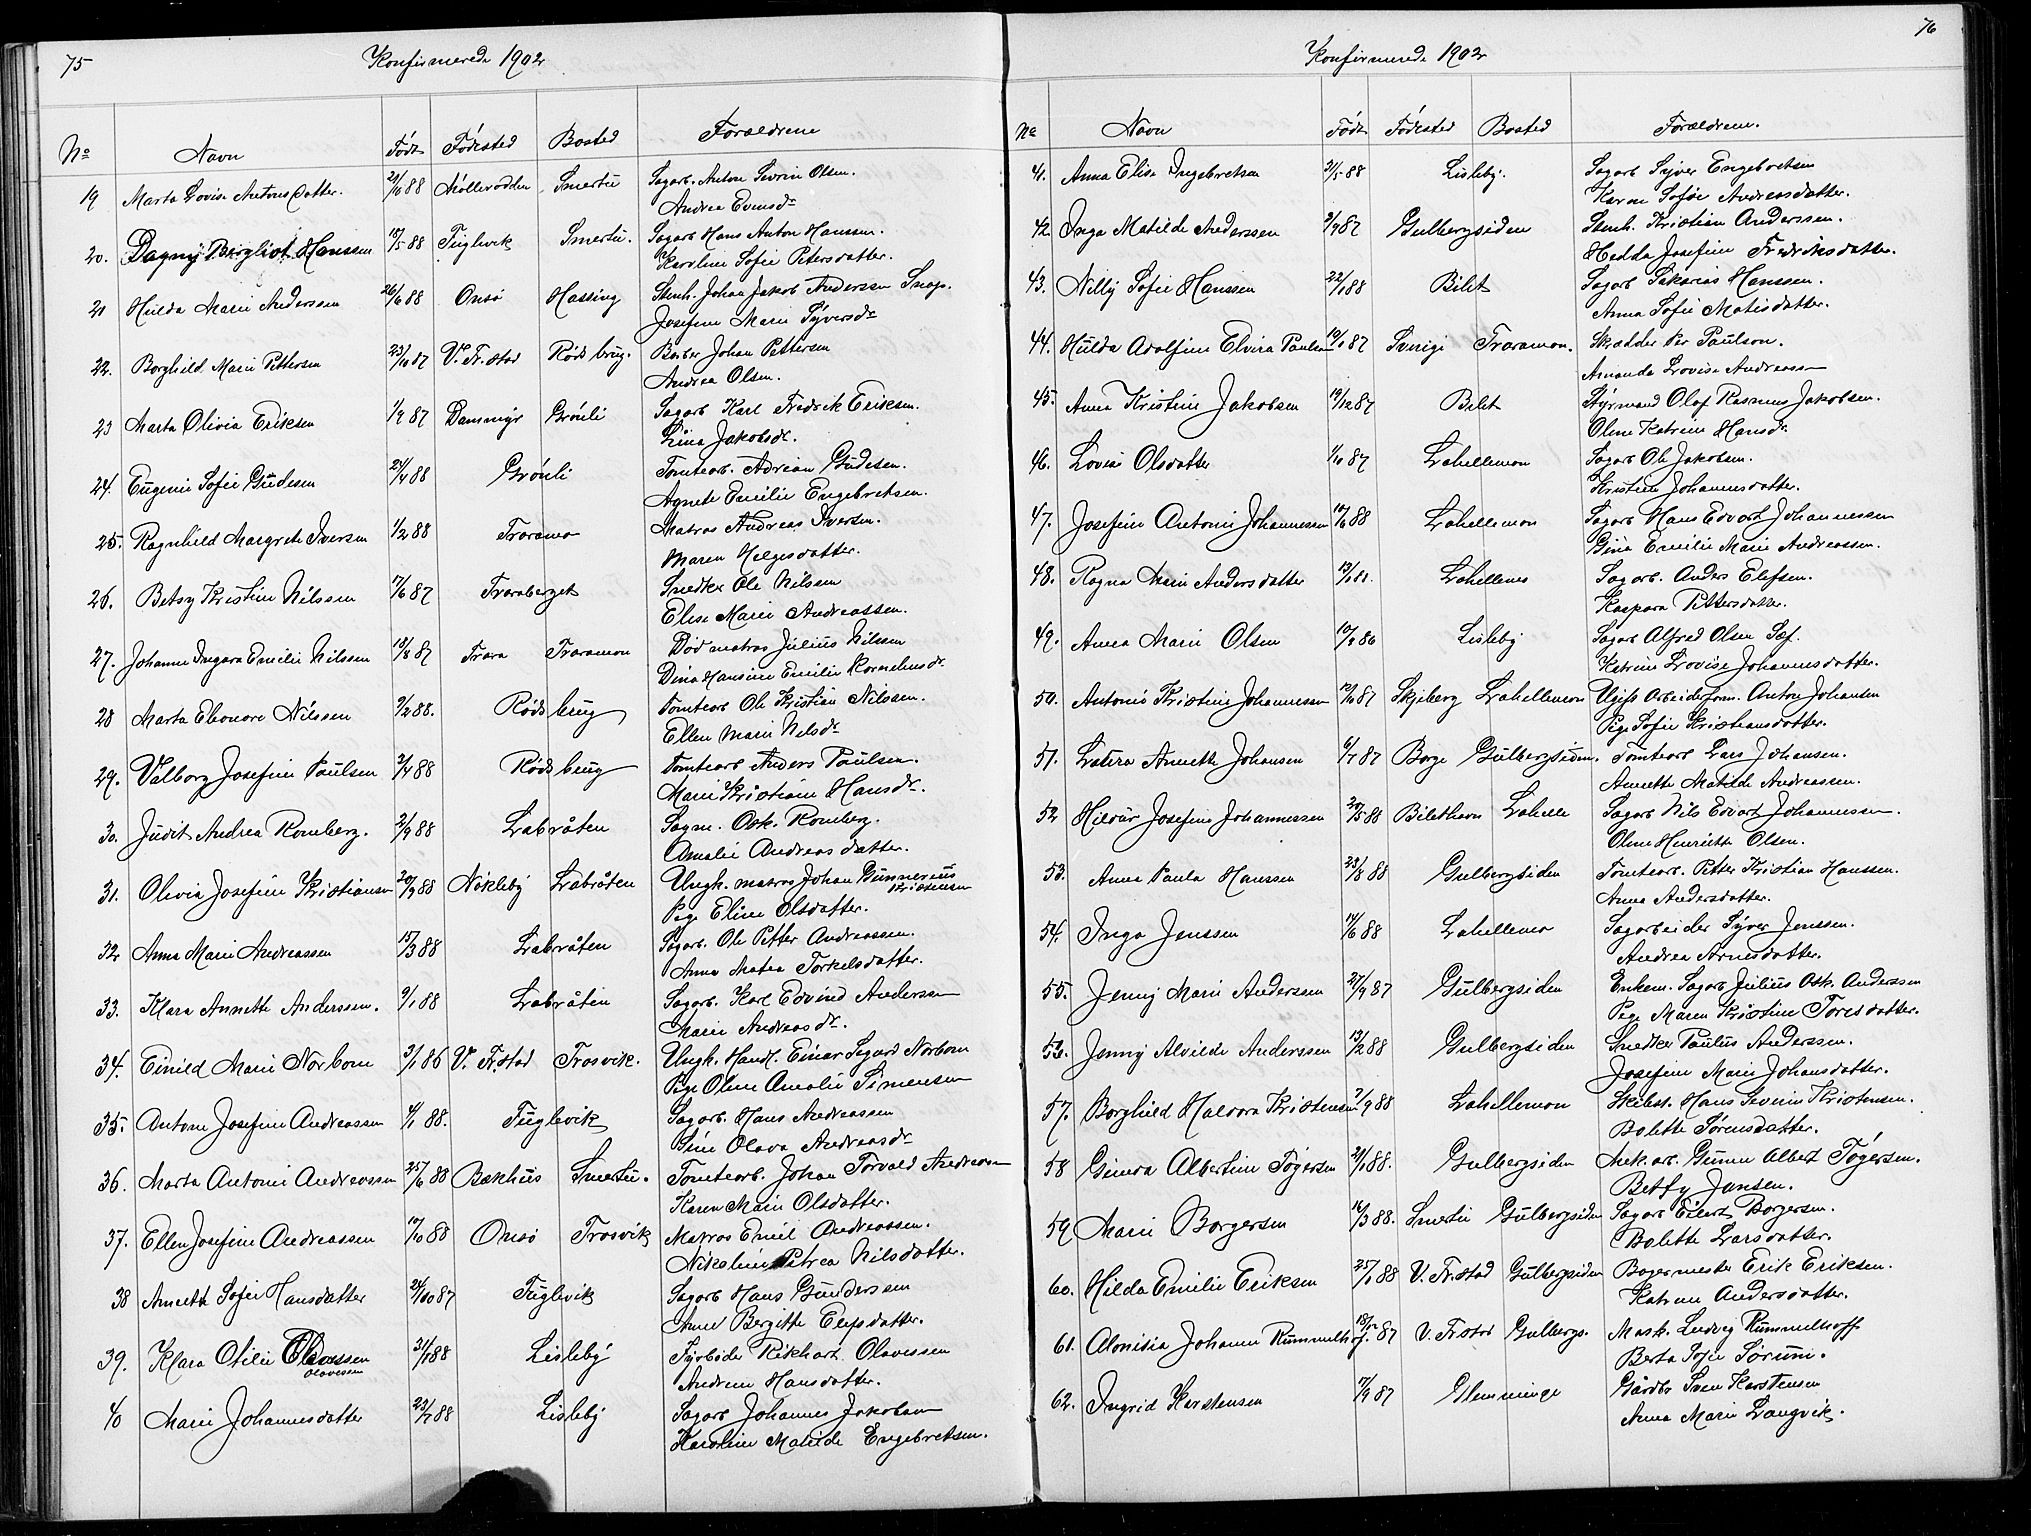 75
Konfirmerede 1902
No Navn Født Fødested Bosted Forældrene
19 Marta Lovise Antonsdatter. 88 Møllerodden Smertu Sagarb. Anton Severin Olsen.
Andrea Evensdr
20. Dagny Bergliot Hanssen 18/5 88 Fuglevik Smertu. Sagarb Hans Anton Hanssen.
Karoline Sofie Petersdatter.
21 Hulda Marie Anderssen 26/6 88 Onsö Hassing Stenh. Johan Jakob Anderssen
Josefine Marie Syversdr
22. Borghild Marie Pettersen 23/10 87 V. Fr.stad Röds brug. Barber Johan Pettersen
Andrea Olsen.
23 Marta Olivia Eriksen 1/9 87 Dammyr Grönli Sagarb Karl Fredrik Eriksen.
Lina Jakobsdr.
24. Eugenie Sofie Gudesen 21/4 88 Grönli Tomtearb. Adrian Gudesen.
Agnete Emilie Engebretsen.
25. Ragnhild Margrete Iversen 1/2 88 Traramo Matros Andreas Iversen.
Maren Helgesdatter.
26. Betsy Kristine Nilssen 17/6 87 Traraberget Snedker Ole Nilssen
Elise Marie Andreassen.
27. Johanne Ingara Emilie Nilssen 18/8 87 Trara Traramon Død matros Julius Nilssen
Dina Hansine Emilie Korneliusdr.
28 Marta Eleonore Nilssen 9/2 88. Röds brug Tomtearb Ole Kristian Nilssen.
Ellen Marie Nilsdr
29. Valborg Josefine Paulsen 3/4 88 Röds brug Tomtearb Anders Paulsen.
Marie Kristiane Hansdr.
30. Judit Andrea Romberg. 2/9 88 Labråten Sagm. Osk. Romberg.
Amalie Andreasdatter.
31. Olivia Josefine Kristiansen 20/2 88 Nökleby Labråten Ungk. matros Johan Gunnerius Kristensen
Pige Eline Olsdatter.
32 Anna Marie Andreassen 15/3 88 Labråten Sagarb. Ole Petter Andreassen.
Anna Matea Torkelsdatter.
33. Klara Annette Anderssen. 9/1 88 Labråten Sagarb. Karl Edvind Anderssen
Marie Andreasdr.
34. Einild Marie Norbom 3/1 86 V. Fr.stad Trosvik. Ungk. Handl. Einar Sigard Norbom
Pige Oline Amalie Simensen
35. Antone Josefine Andreassen 4/1 88. Fuglevik Sagarb. Hans Andreassen
Sine Olava Andreasdr
36. Marta Antonie Andreassen 25/6 88 Bækhus Smertu. Tomtearb. Johan Torvald Andreassen
Karen Marie Olsdatter.
37. Ellen Josefine Andreassen 10/10 88 Onsö Trosvik Matros Emil Andreassen.
Nikoline Petrea Nilsdatter.
38 Annette Sofie Hansdatter 24/10 87 Fuglevik Sagarb Hans Gunderssen
Anne Bergitte Elefsdatter.
39. Klara Otilie Olavessen 31/7 88 Lisleby Fyrböder Rikhart Olavessen
Olavessen
Andrine Hansdatter.
40 Marie Johannesdatter 23/7 88 Lisleby Sagarb Johannes Jakobsen
Karoline Matilde Engebretsen.
76
Konfirmerede 1902
No Navn Født Fødested Bosted Forældrene.
41. Anna Elise Ingebretsen 31/5 88 Lisleby. Sagarb Syver Engebretsen
Karen Sofie Andreasdatter.
42 Inga Matilde Anderssen 3/9 87 Gulbergsiden Stenh. Kristian Anderssen.
Hedda Josefine Fredriksdatter.
43. Nilly Sofie Hanssen 22/1 88 Bilet Sagarb Sakarias Hanssen.
Anna Sofie Matisdatter.
44. Hulda Adolfine Elvira Paulsen 19/10 87 Sverige Traramon. Skrædder Per Paulson.
Amanda Lovise Andreassen
45. Anna Kristine Jakobsen 19/12 87 Bilet Styrmand Olaf Rasmus Jakobsen.
Oline Katrine Hansdr.
46. Lovise Olsdatter 1/10 87 Lahellemon Sagarb Ole Jakobsen.
Kristine Johannesdatter.
47. Josefine Antonie Johannessen 10/6 88 Lahellemon Sagarb Hans Edvart Johannessen
Gina Emilie Marie Andreassen.
48. Ragna Marie Andersdatter 13/1 88. Lahellemo Sagarb. Anders Elefsen.
Kaspara Pettersdatter.
49. Anna Marie Olsen 10/8 86 Lisleby Sagarb Alfred Olsen
Katrine Lovise Johannesdatter.
50. Antonie Kristine Johannessen 12/10 87 Skjeberg Lahellemon Ugift Arbeiderform. Anton Johansen
Pige Sofie Kristiansdatter.
51. Latera Annette Johansen 6/7 87 Borge Gulbergsiden. Tomtearb Lars Johansen.
Annette Matilde Andreassen.
52 Hildur Josefine Johannessen 20/5 88 Bilethavn Lahelle Sagarb Nils Edvart Johannessen.
Oline Henriette Olsen.
53. Anna Paula Hanssen 23/8 88 Gulbergsiden Tomtearb. Petter Kristian Hanssen.
Anna Andersdatter.
54. Inga Jenssen 14/6 88 Lahellemo Sagarbeider Syver Jenssen.
Andrea Arnesdatter.
55. Jenny Marie Anderssen 27/9 87 Gulbergsiden Enkem. Sagarb Julius Osk. Anderssen
Pige Maren Kristine Toresdatter.
56. Jenny Alvilde Anderssen 13/2 88 Gulbergsiden Snedker Paulus Anderssen.
Josefine Marie Johansdatter.
57. Borghild Haldora Kristensen 7/9 88 Lahellemon Skibst. Hans Severin Kristensen.
Bolette Sørensdatter.
58 Ginera Albertine Tögersen 21/1 88. Gulbergsiden Mek. arb. Gunner Albert Tögersen.
Betsy Jansen.
59 Marie Borgersen 16/3 88. Smertu Gulbergsiden Sagarb Eilert Borgersen.
Bolette Larsdatter.
60. Hilda Emilie Eriksen 25/1 88 V. Fr.stad Gulbergsiden Bagermester Erik Eriksen.
Katrine Andersdatter.
61. Alonisia Johanne Rummelhoff. 87 V. Fr.stad Gulbergs. Mask. Ludvig Rummelhoff
Berta Sofie Sörum.
62. Ingrid Karstensen 7/9 87 Glemminge Gårdbr Sven Karstensen
Anna Marie Langvik.